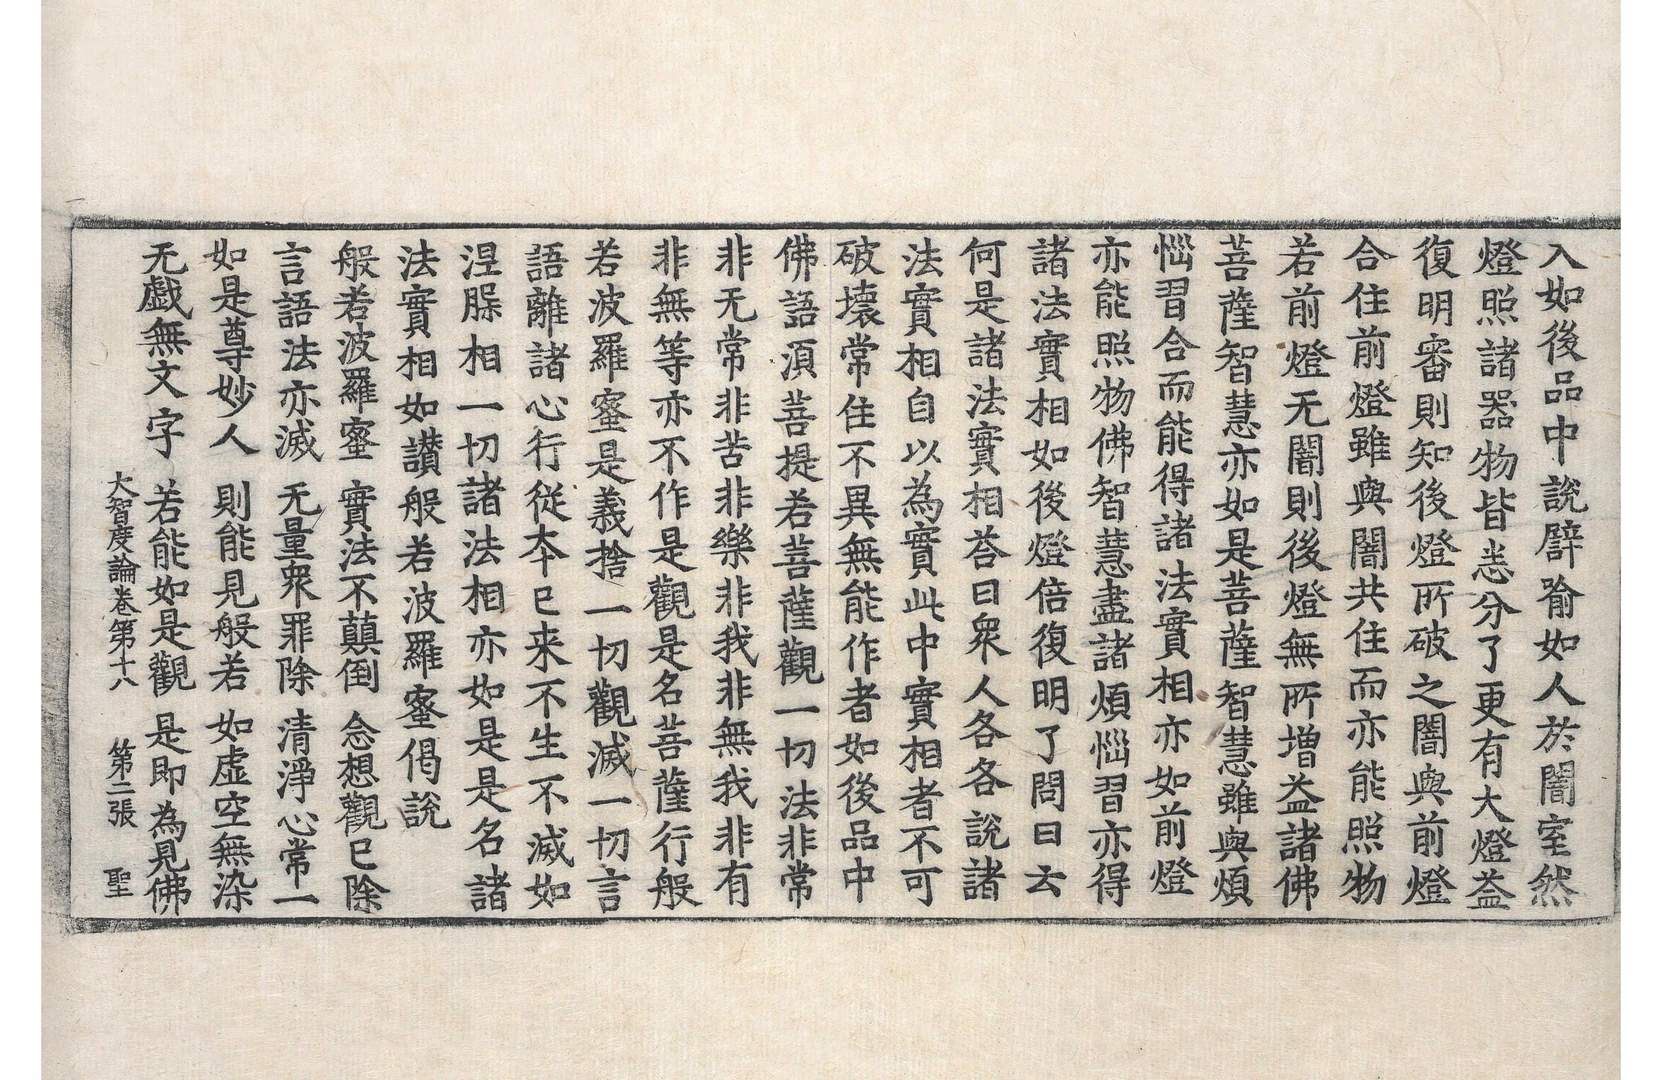 入如後品中說譬喻如人於闇室然
燈照諸器物皆悉分了更有大燈益
復明審則知後燈所破之闇與前燈
合住前燈雖與闇共住而亦能照物
若前燈无闇則後燈無所增益諸佛
菩薩智慧亦如是菩薩智慧雖與煩
惱習合而能得諸法實相亦如前燈
亦能照物佛智慧盡諸煩惱習亦得
諸法實相如後燈倍復明了問曰云
何是諸法實相荅曰衆人各各說諸
法實相自以為實此中實相者不可
破壞常住不異無能作者如後品中
佛語湏菩提若菩薩觀一切法非常
非无常非苦非樂非我非無我非有
非無等亦不作是觀是名菩薩行般
若波羅蜜是義捨一切觀滅一切言
語離諸心行從本已来不生不滅如
涅槃相一切諸法相亦如是是名諸
法實相如讃般若波羅蜜偈說
般若波羅蜜 實法不顛倒 念想觀已除
言語法亦滅 无量衆罪除 清淨心常一
如是尊妙人 則能見般若 如虛空無染
无戯無文字 若能如是觀 是即為見佛
大智度論卷第十八 第二張 聖